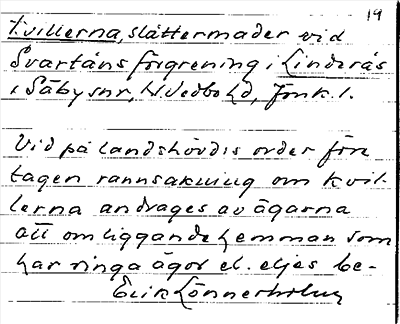 19
Kvillerna, slåttermader vid
Svartåns förgrening i Linderås
i Säby snr, N Vedbo hd, Jönk. l.
Vid på landshövdis order före
tagen rannsakning om Kvil-
lerna andrages av ägarna
att omliggande hemman som
har ringa ägor el. eljes be-
Erik Lönnerholm